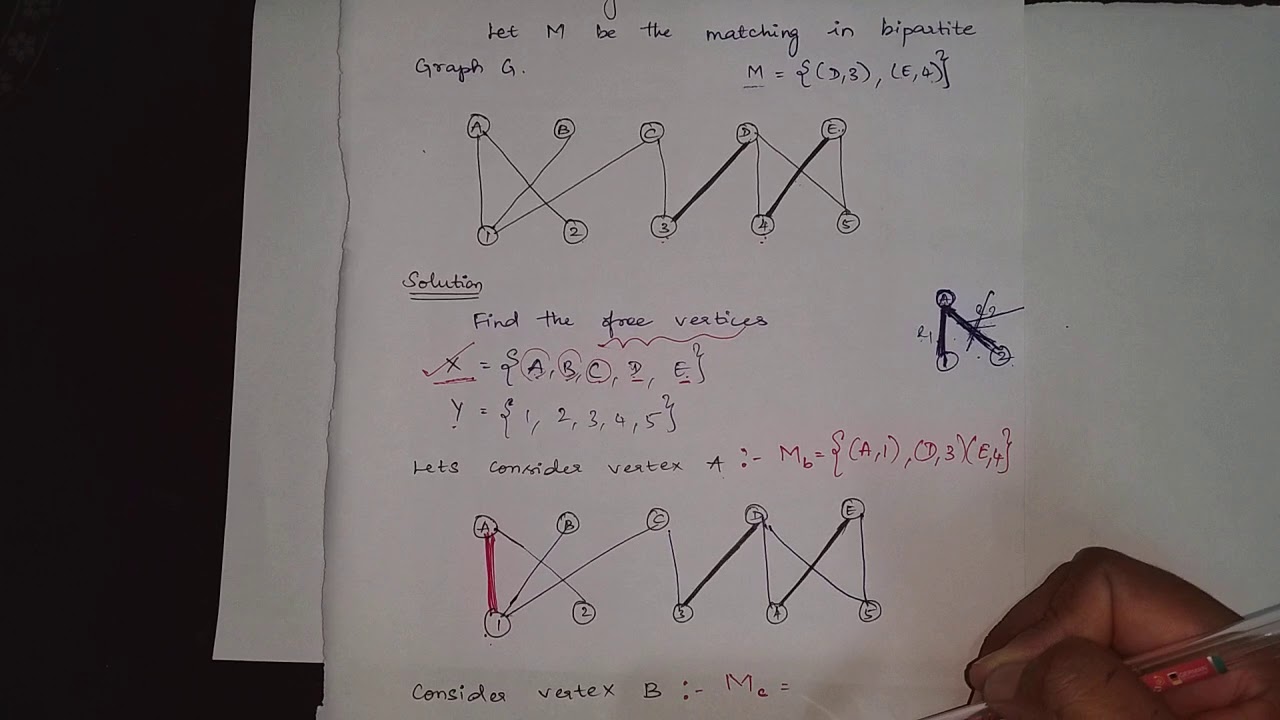 Let M be the matching in bipartite
Graph G. M = {(D,3), (E,4)}
A B C D E
1 2 3 4 5
Solution
Find the free vertices
X = {A, B, C, D, E}
Y = {1, 2, 3, 4, 5}
A
2
Lets Consider vertex A :- Mb = {(A,1), (D,3)(E,4}
A B C D E
1 2 3 4 5
Consider vertex B :- Mc =